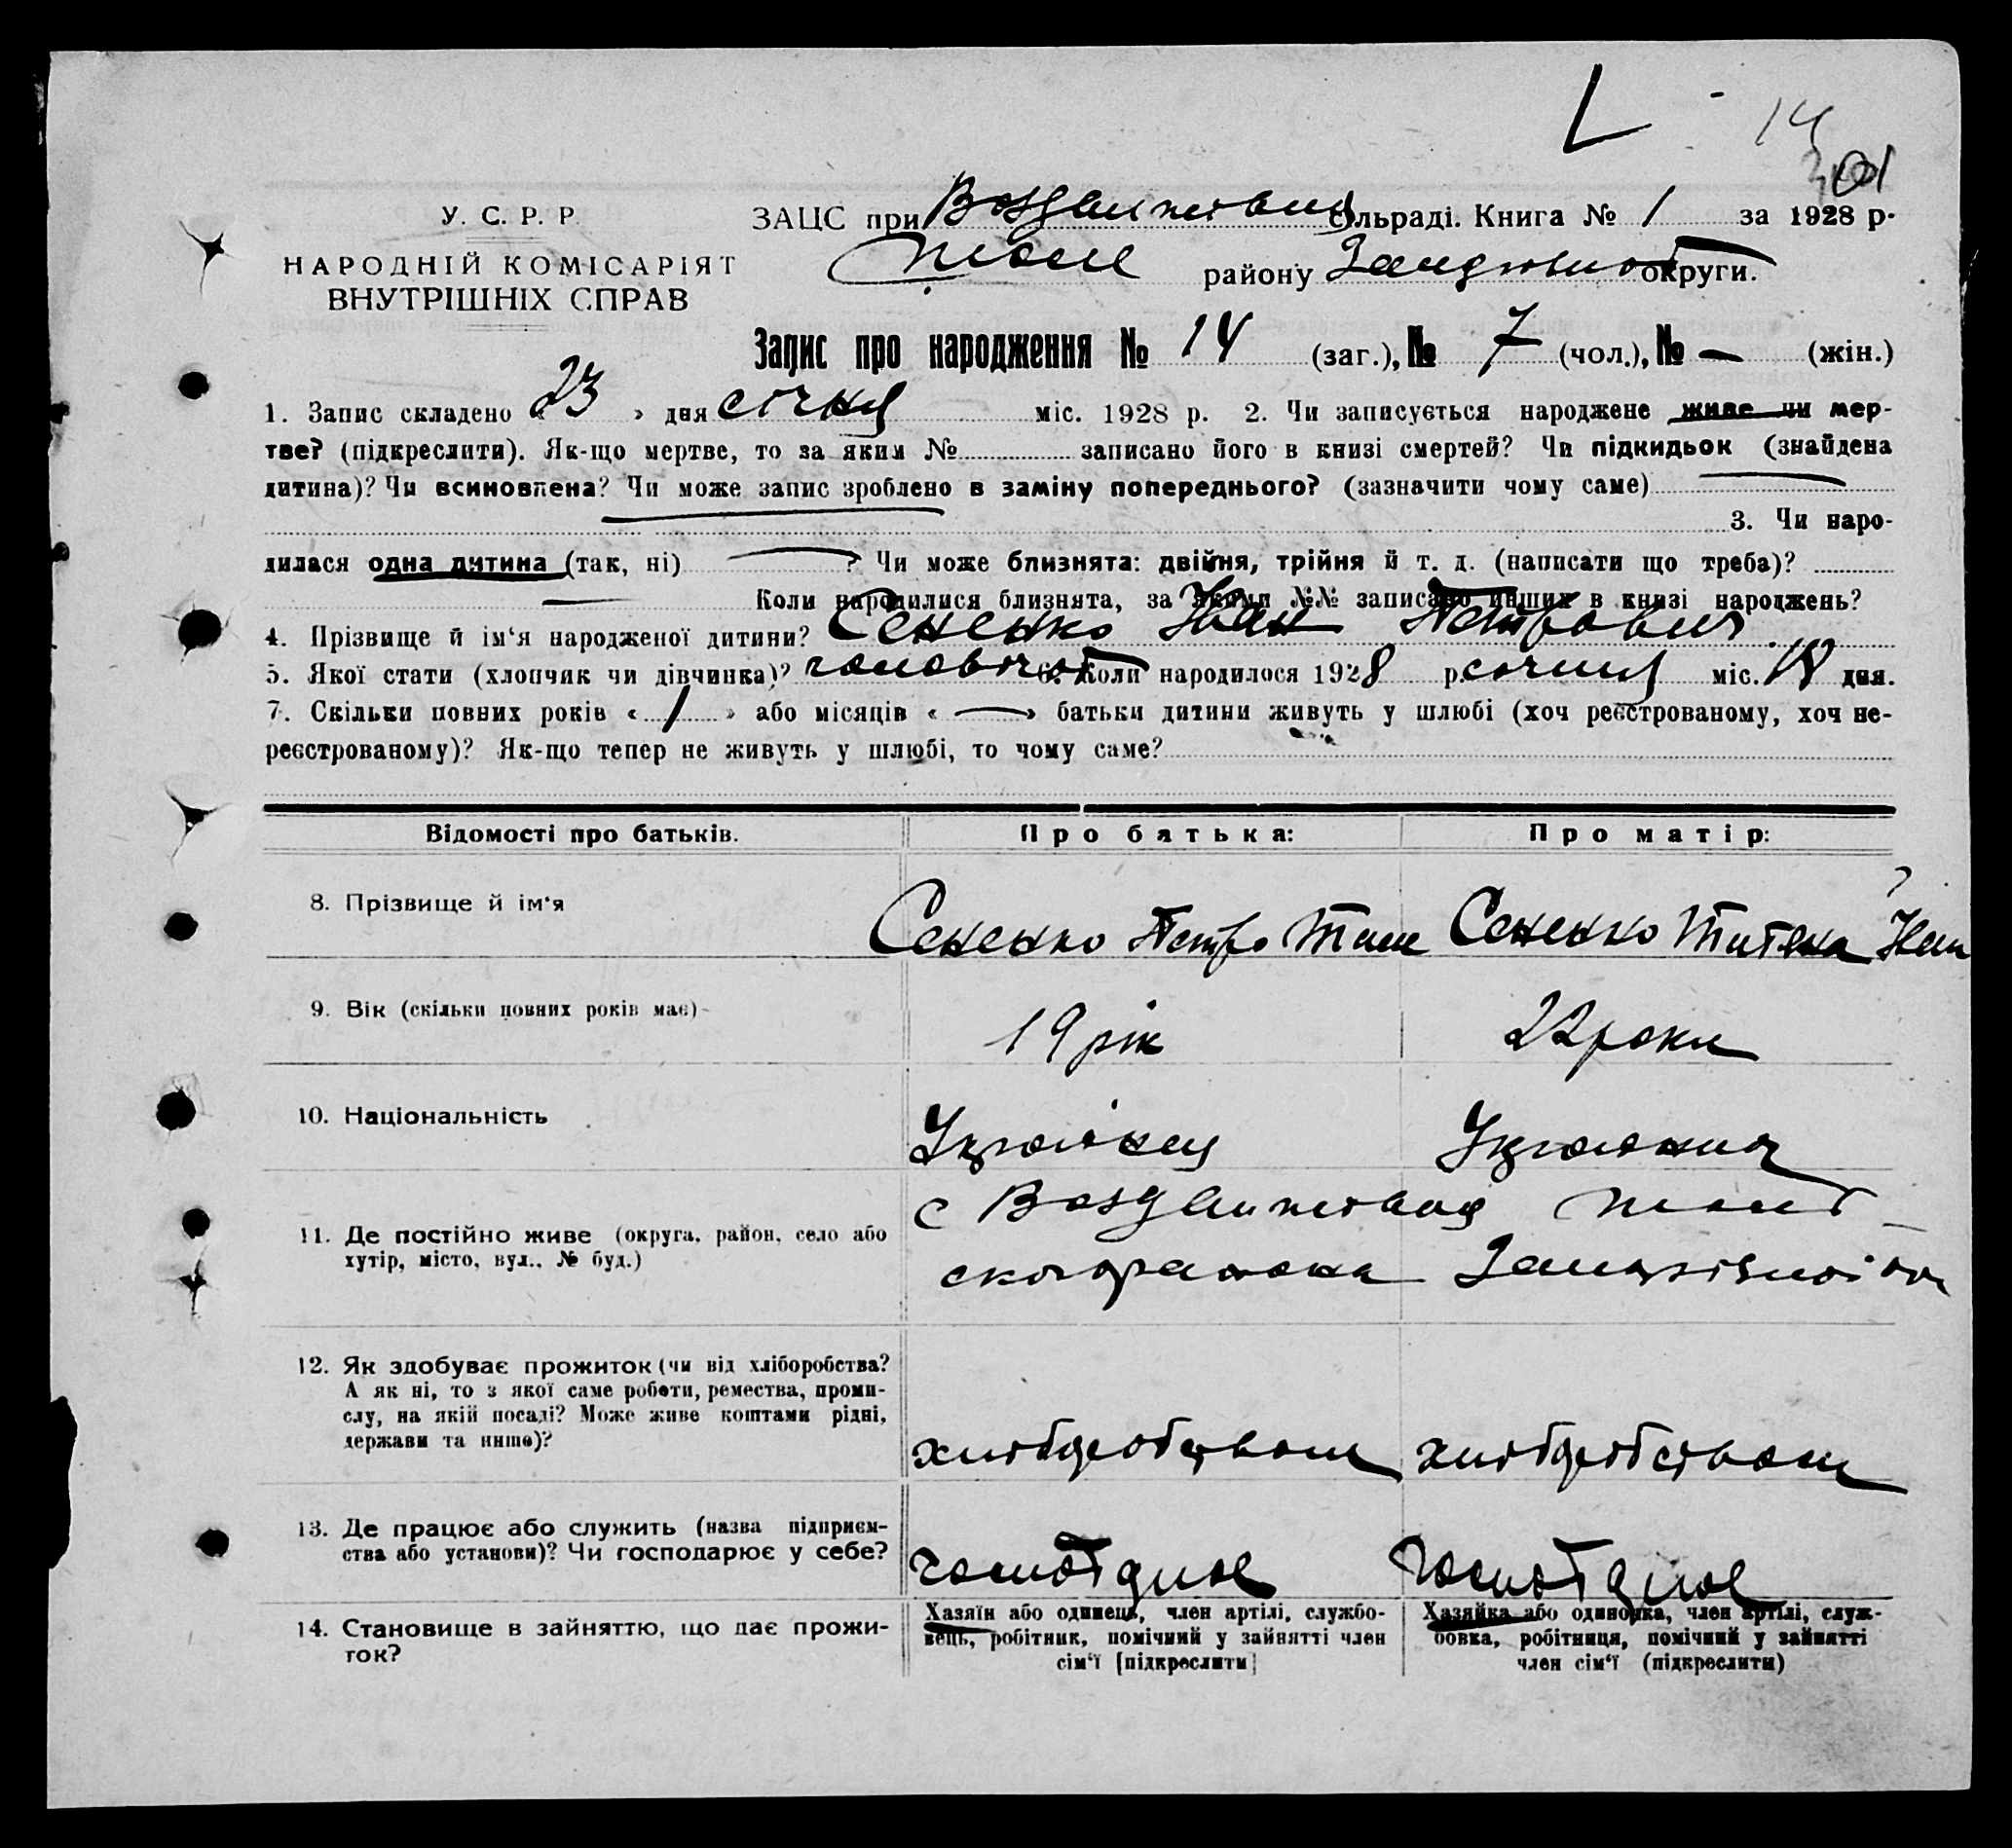 14
301
У. С. Р. Р.
НАРОДНІЙ КОМІСАРІЯТ
ВНУТРІШНІХ СПРАВ
ЗАЦС при Воздвижівській сільраді. Книга № 1 за 1928 р.
району округи.
Запис про народження № 14 (заг.), № 7 (чол.), № — (жін.)
1. Запис складено « 23 » дня січня міс. 1928 р. 2. Чи записується народжене живе чи мер-
тве? (підкреслити). Як-що мертве, то за яким № записано його в книзі смертей? Чи підкидьок (знайдена
дитина)? Чи всиновлена? Чи може запис зроблено в заміну попереднього? (зазначити чому саме)
3. Чи наро-
дилася одна дитина (так, ні) ? Чи може близнята: двійня, трійня й т. д. (написати що треба)?
Коли народилися близнята, за якими №№ записано инших в книзі народжень?
4. Прізвище й ім‘я народженої дитини? Сененко Іван Петрович
5. Якої стати (хлопчик чи дівчинка)? чоловічої 6. Коли народилося 1928 р. січня міс. 18 дня.
7. Скільки повних років « 1 » або місяців « — » батьки дитини живуть у шлюбі (хоч реєстрованому, хоч не-
реєстрованому)? Як-що тепер не живуть у шлюбі, то чому саме?
Відомості про батьків. Про батька: Про матір:
8. Прізвище й ім‘я Сененко Петро Сененко Титяна
9. Вік (скільки повних років має) 19 рік 22 роки
10. Національність Українец Українка
11. Де постійно живе (округа, район, село або
хутір, місто, вул., № буд.)
с
12. Як здобуває прожиток (чи від хліборобства?
А як ні, то з якої саме роботи, ремества, проми-
слу, на якій посаді? Може живе коштами рідні,
держави та инше)?
хліборобством хліборобством
13. Де працює або служить (назва підприєм-
ства або установи)? Чи господарює у себе?
14. Становище в зайняттю, що дає прожи-
ток?
Хазяїн або одинець, член артілі, службо-
вець, робітник, помічний у зайнятті член
сім‘ї (підкреслити)
Хазяйка або одиночка, член артілі, служ-
бовка, робітниця, помічний у зайнятті
член сім‘ї (підкреслити)